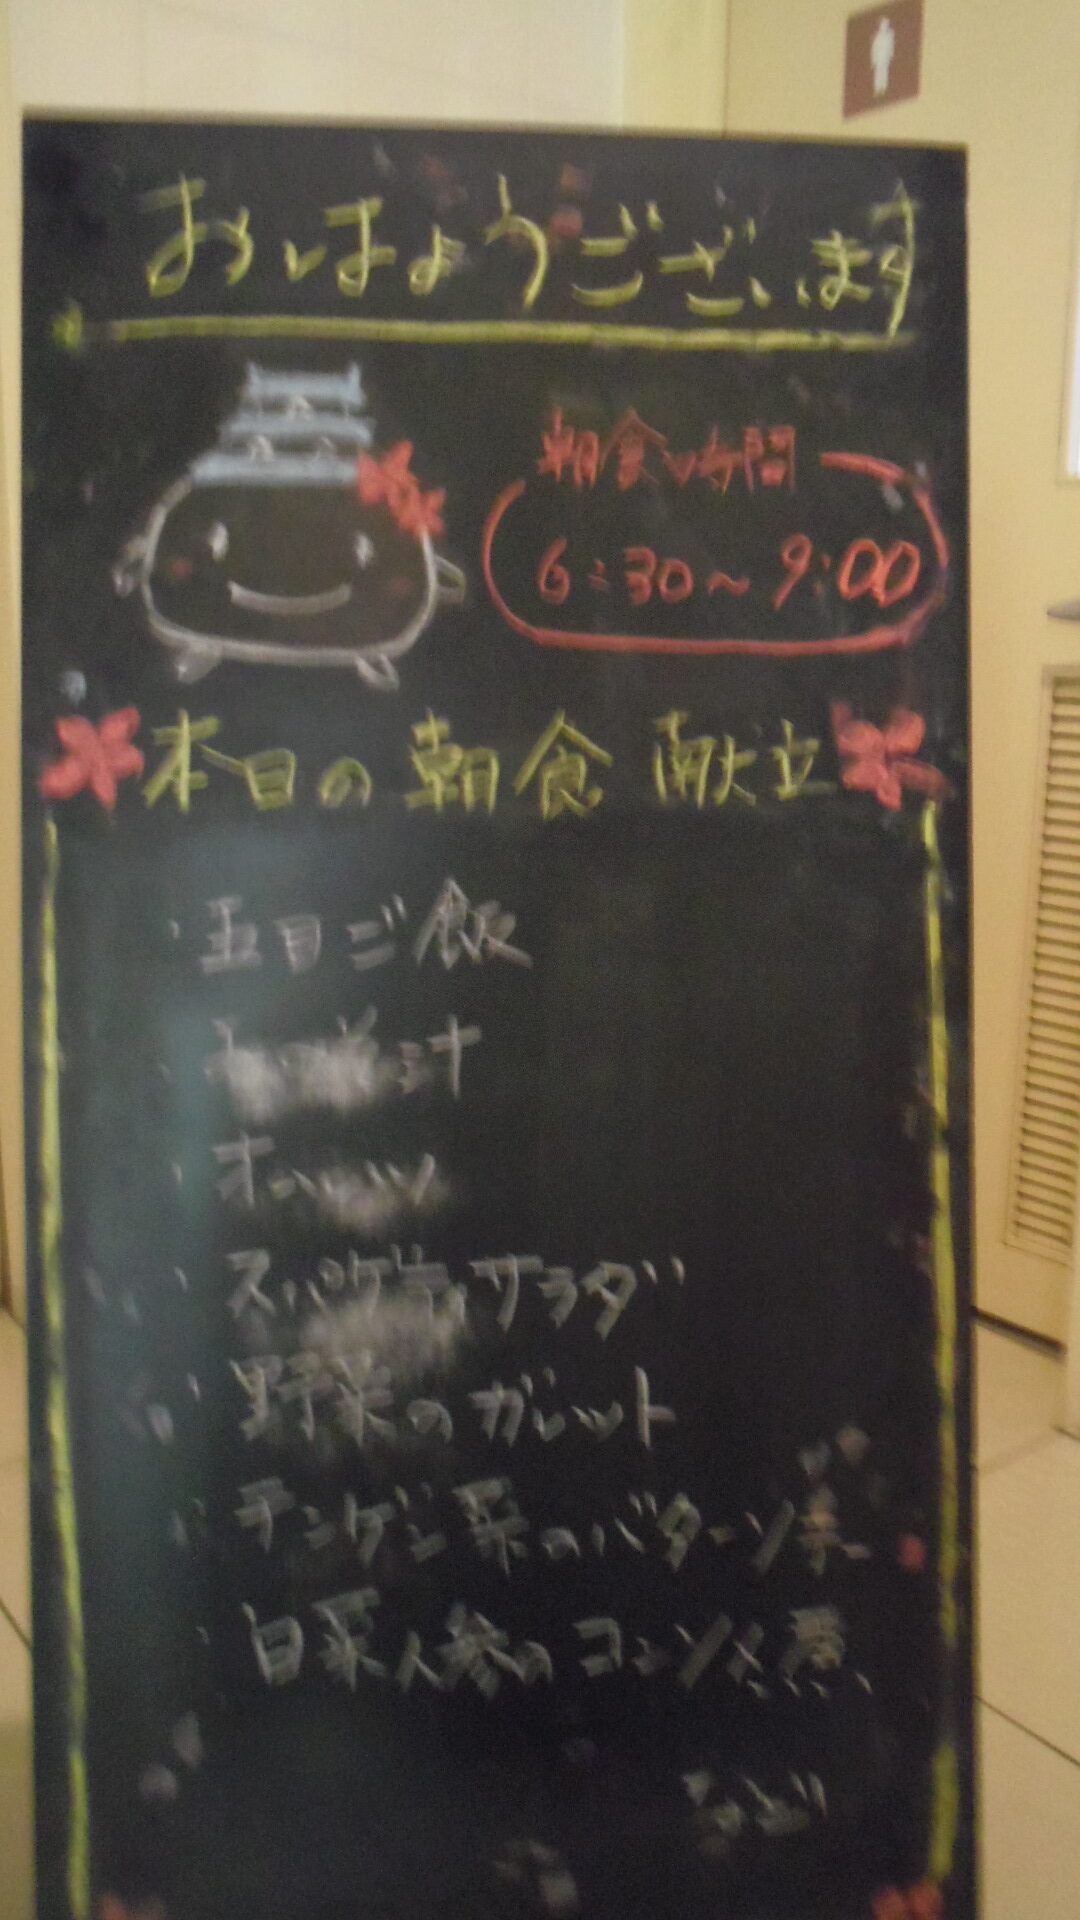 おはようございます
朝食時間
6:30～9:00
本日の朝食献立
五目ご飯
サラダ
野菜のガレット
チンゲン菜のバターソテー
白菜人参のコンソメ煮
など